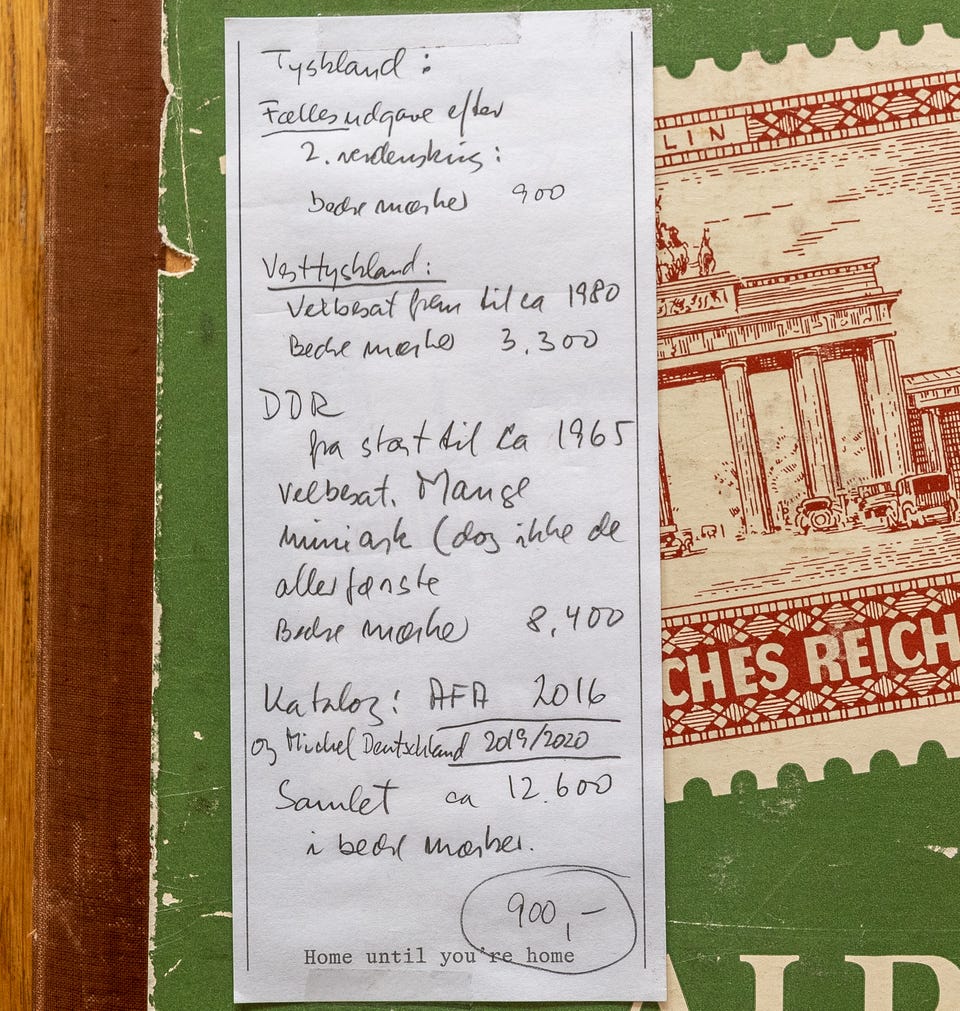 Tyskland :
Fællesudgave efter
2. verdenskrig :
bedre mærker 900
Vesttyskland :
Velbesat frem til ca 1980
Bedre mærker 3.300
DDR
fra start til ca 1965
velbesat. Mange
miniark (dog ikke de
allerførste
Bedre mærker 8,400
Katalog : AFA 2016
og Michel Deutschland 2019/2020
Samlet ca 12.600
i bedre mærker.
900,-
Home until you're home
LIN
CHES REICH
ALB